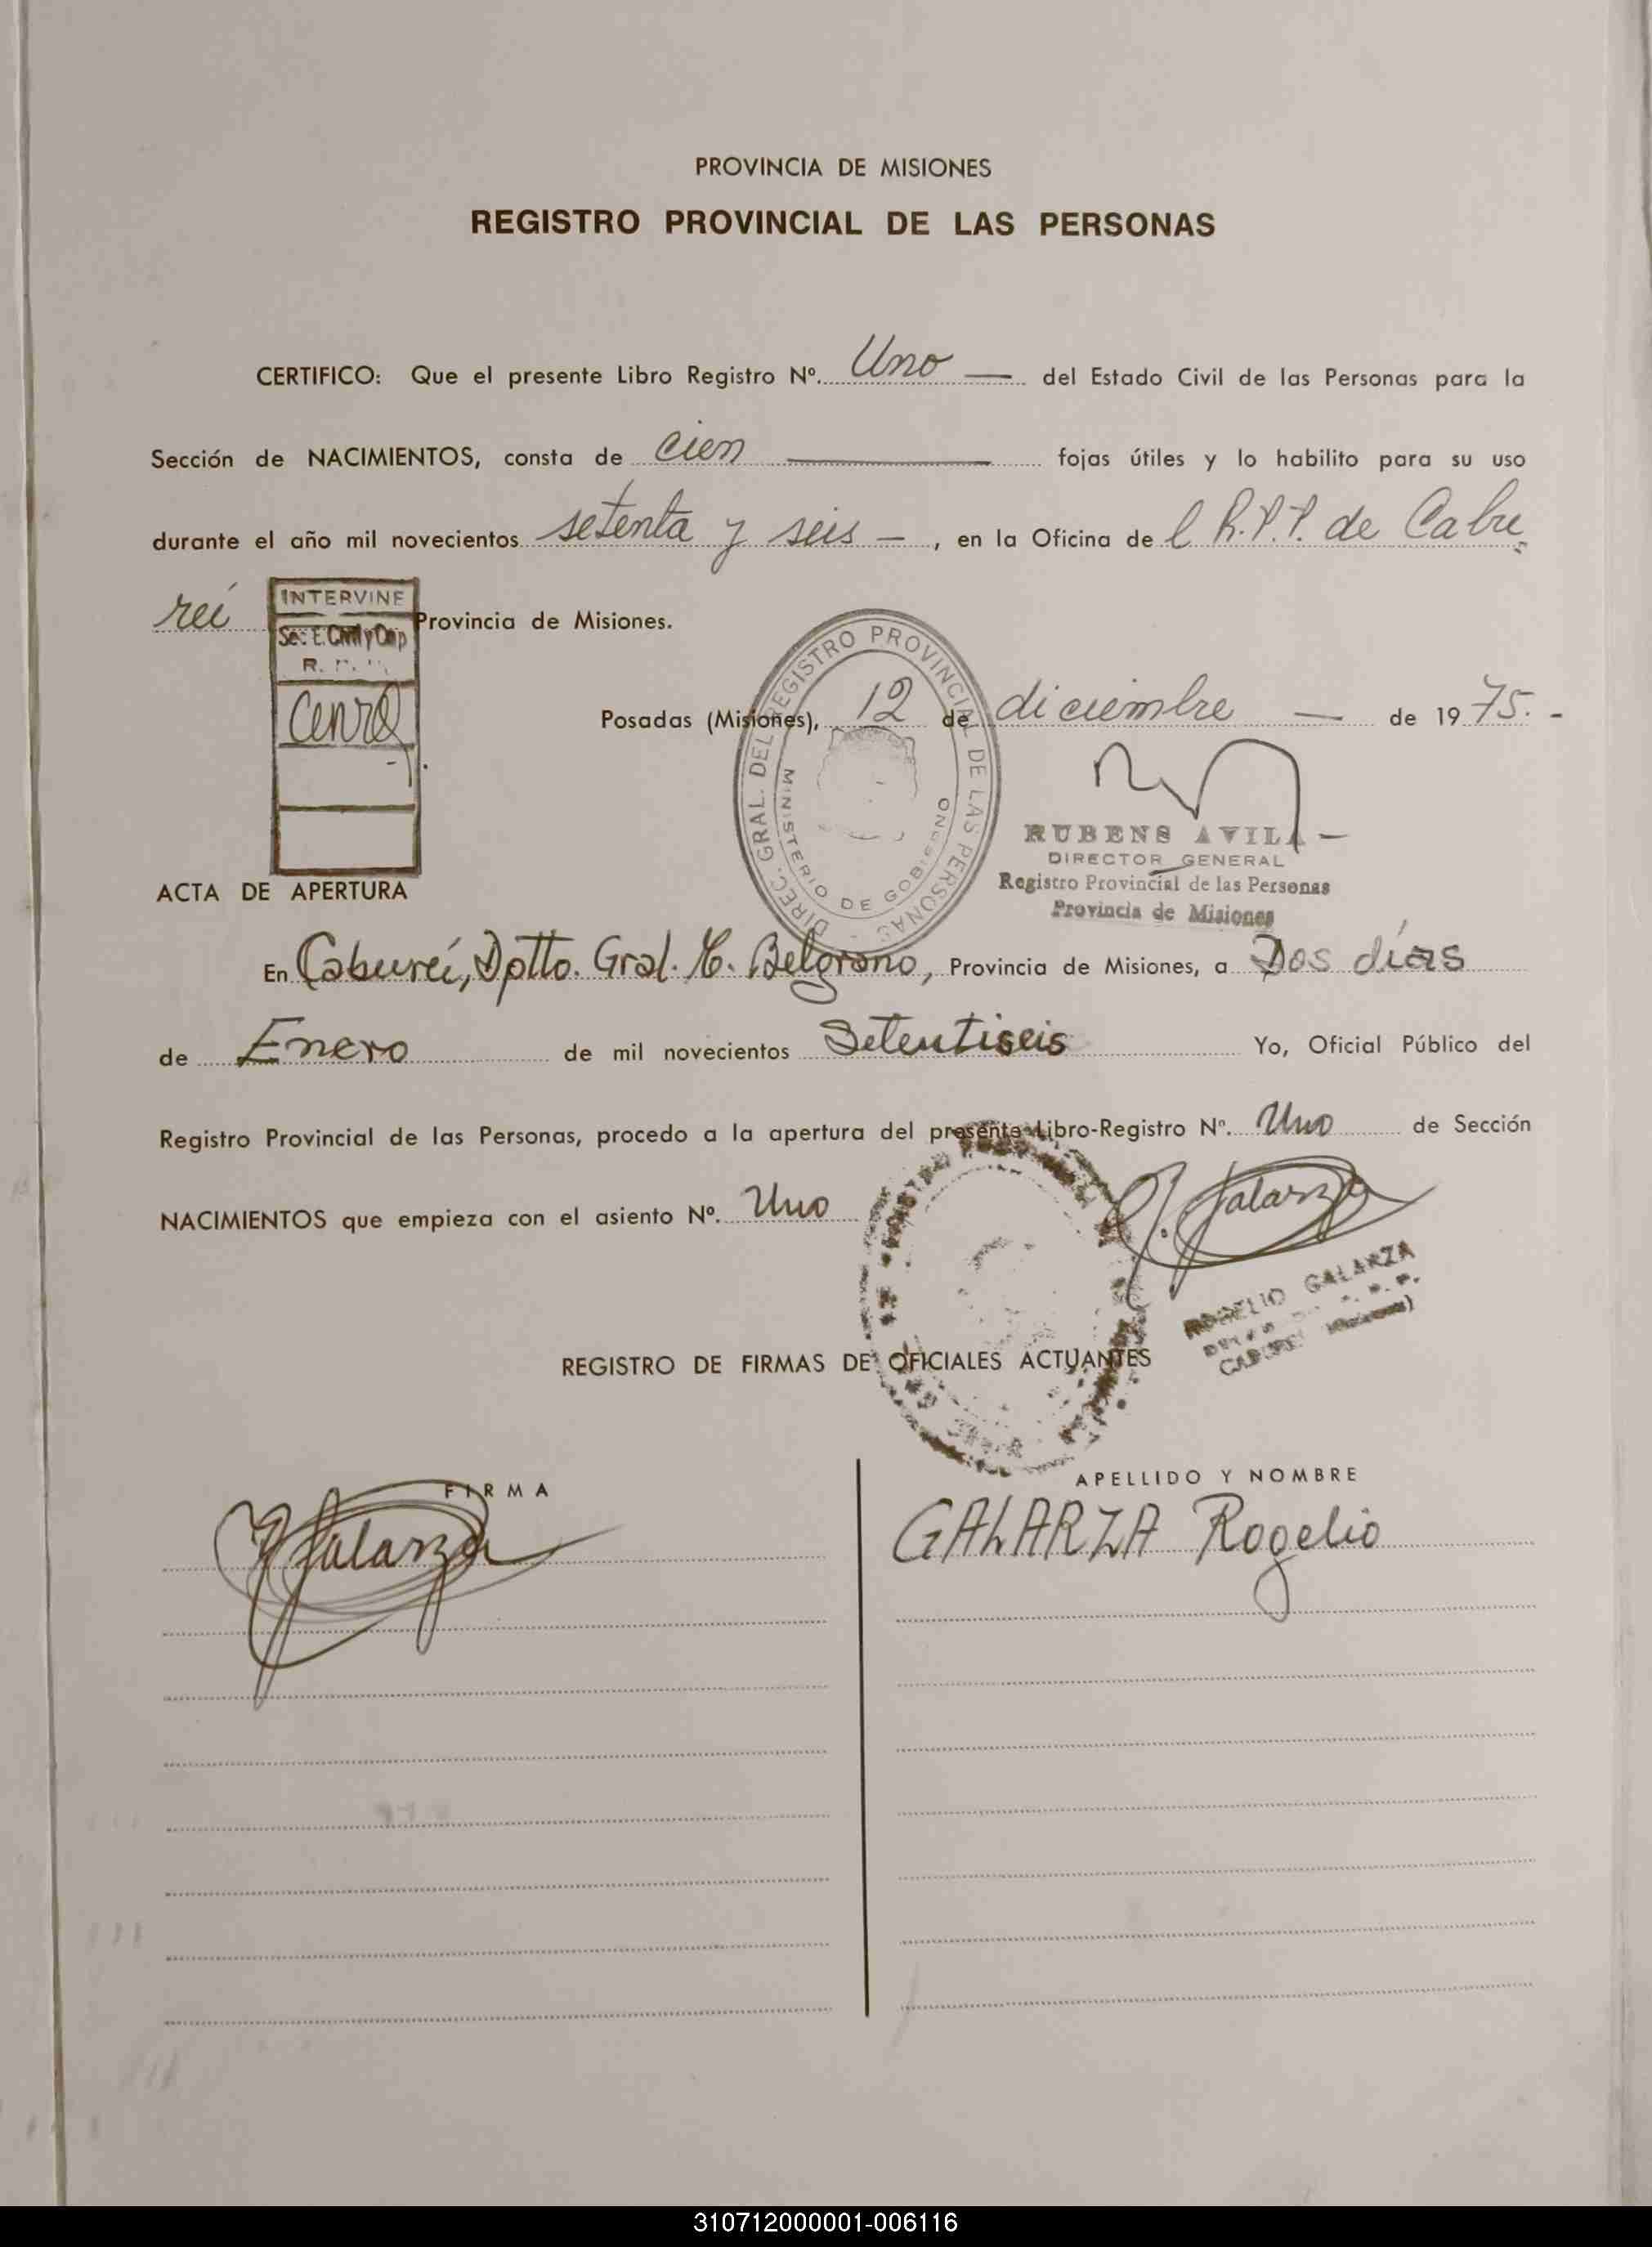 PROVINCIA DE MISIONES
REGISTRO PROVINCIAL DE LAS PERSONAS
CERTIFICO: Que el presente Libro Registro Nº. Uno — del Estado Civil de las Personas para la
Sección de NACIMIENTOS, consta de cien — fojas útiles y lo habilito para su uso
durante el año mil novecientos setenta y seis — , en la Oficina de l R.P.P. de Cabu
reí Provincia de Misiones.
INTERVINE
R.
Posadas (Misiones), 12 de diciembre — de 1975.-
DIREC. GRAL. DEL REGISTRO PROVINCIAL DE LAS PERSONAS
MINISTERIO DE GOBIERNO
RUBENS AVILA
DIRECTOR GENERAL
Registro Provincial de las Personas
Provincia de Misiones
ACTA DE APERTURA
En Cabureí, Dptto. Gral. M. Belgrano, Provincia de Misiones, a Dos días
de Enero de mil novecientos Setentiseis Yo, Oficial Público del
Registro Provincial de las Personas, procedo a la apertura del presente Libro-Registro Nº. Uno de Sección
NACIMIENTOS que empieza con el asiento Nº. Uno
Galarza
ROGELIO GALARZA
CABUREI (Misiones)
REGISTRO DE FIRMAS DE OFICIALES ACTUANTES
FIRMA
APELLIDO Y NOMBRE
Galarza
GALARZA Rogelio
310712000001-006116